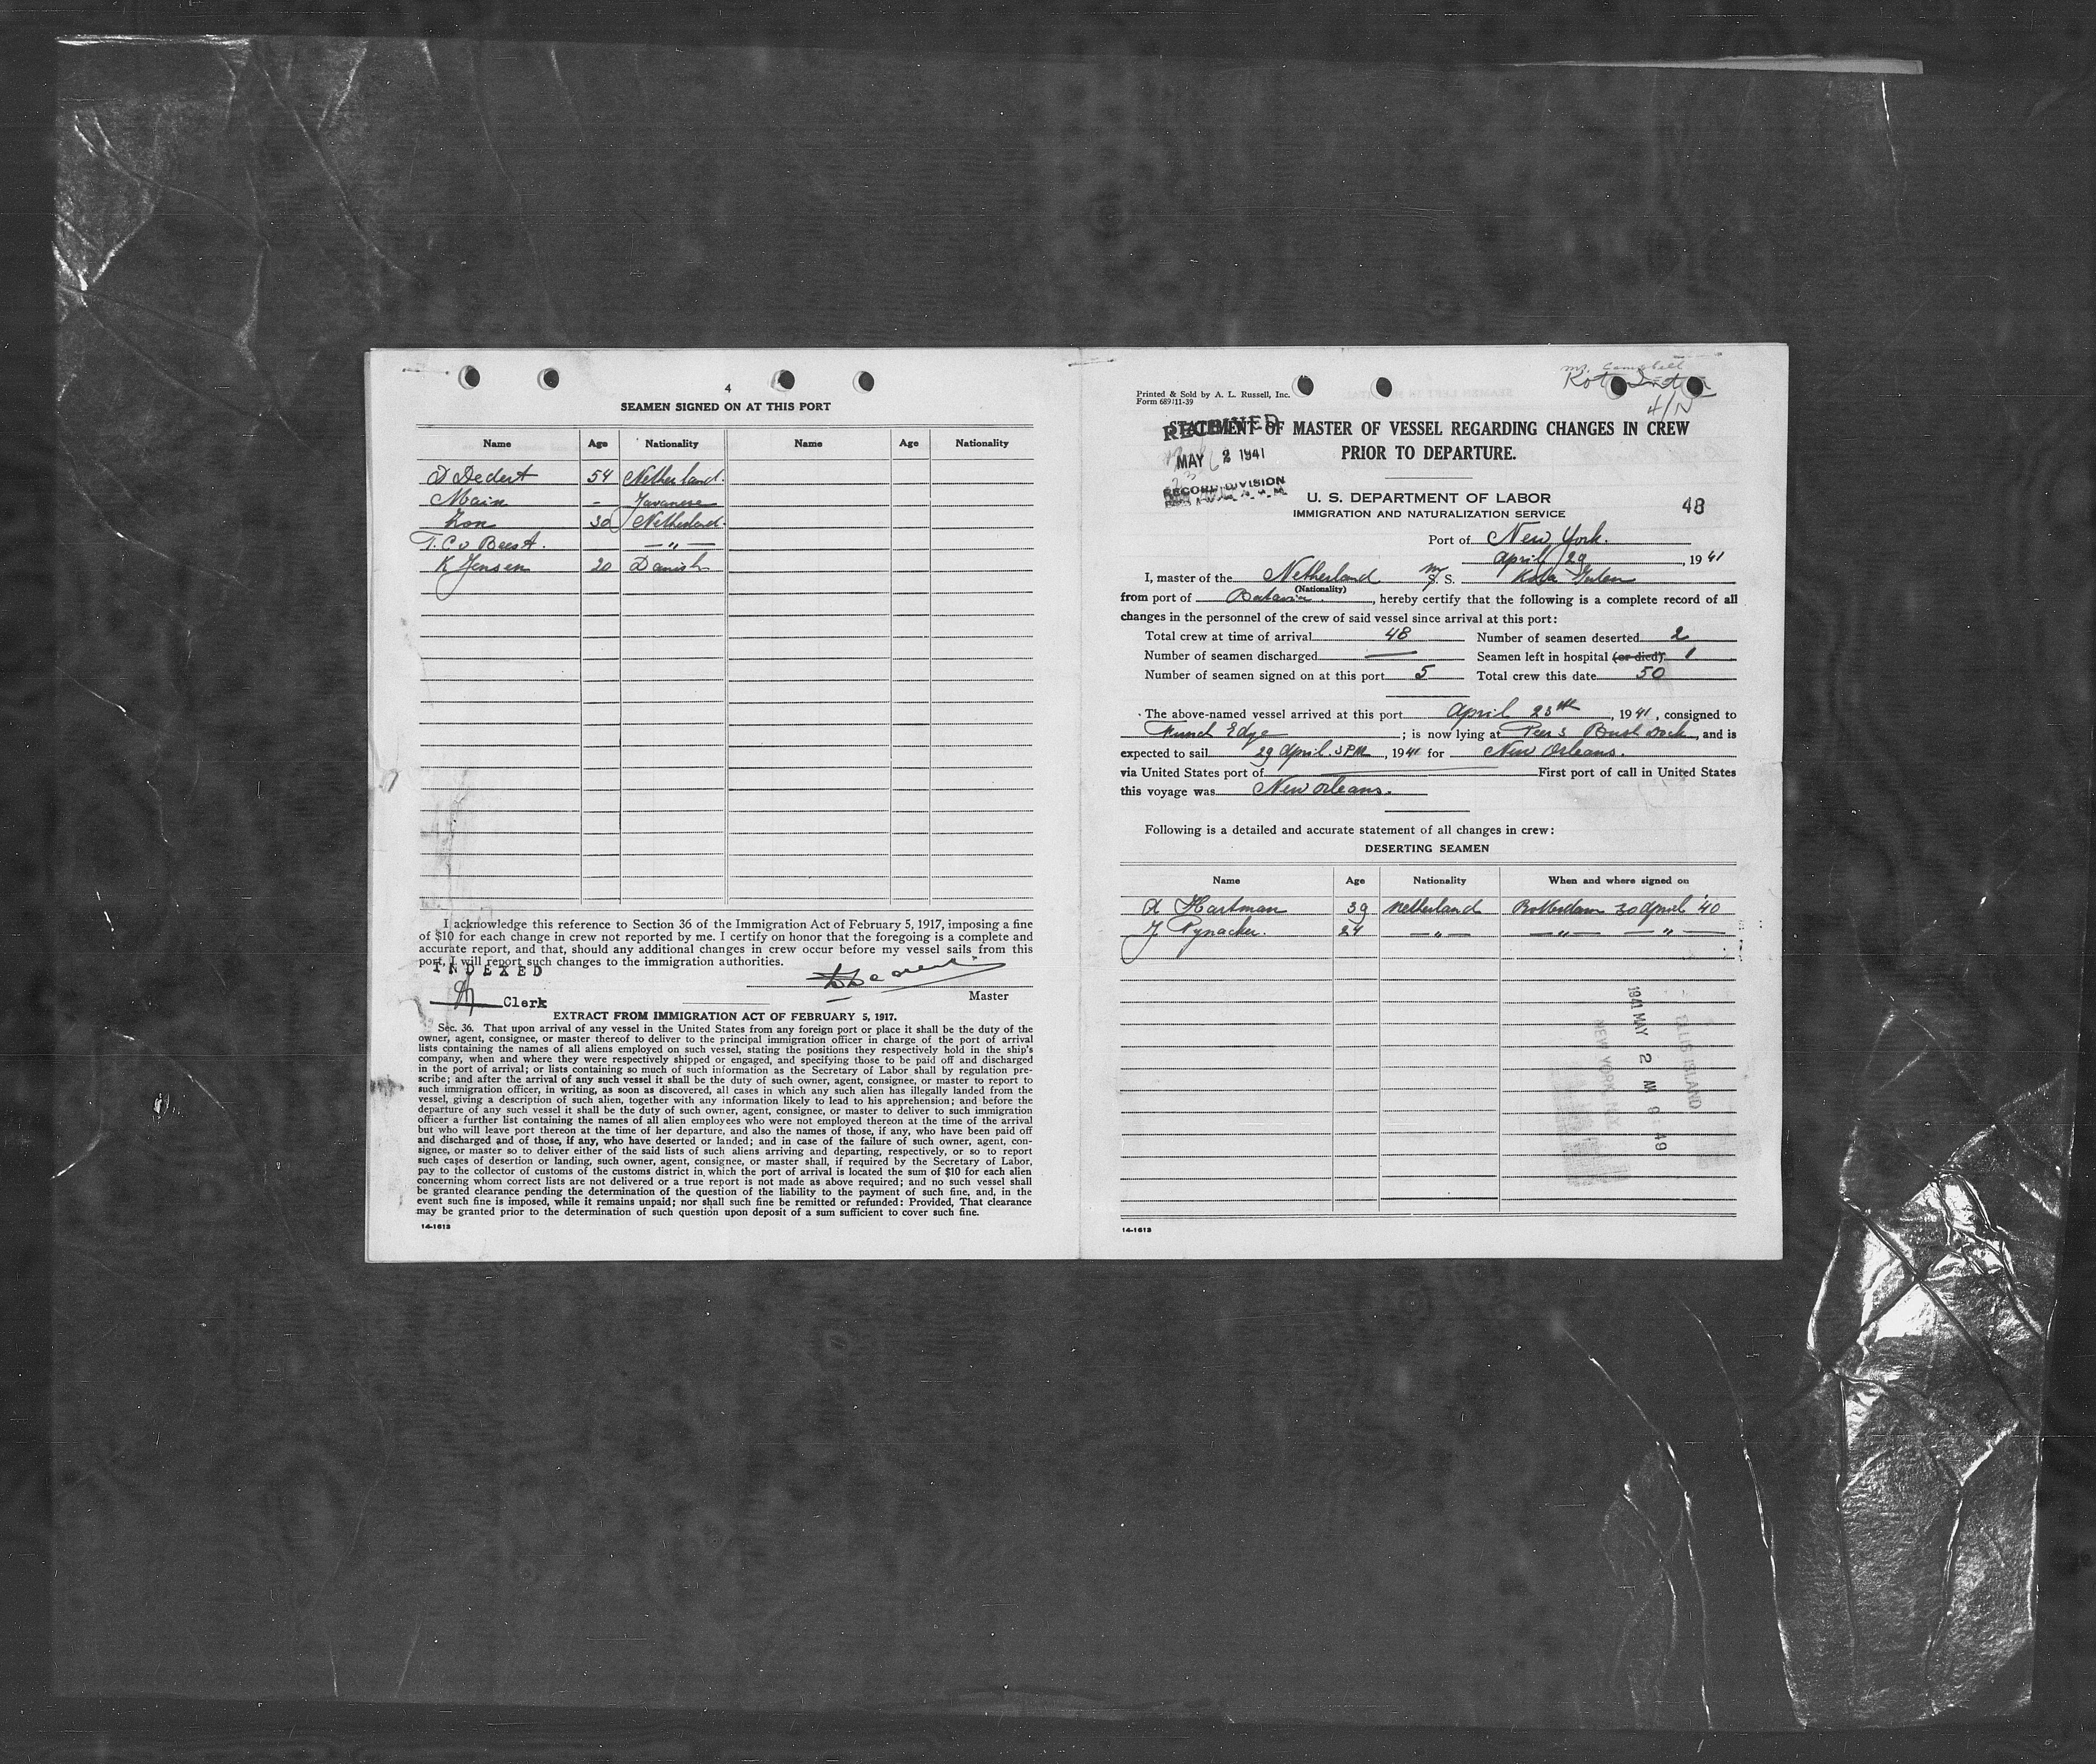 4
SEAMEN SIGNED ON AT THIS PORT
Name Age Nationality Name Age Nationality
D Dedert 54 Netherland.
Main - Javanese
Zon 30 Netherland.
T. C v Beest. — " —
K Jensen 20 Danish
I acknowledge this reference to Section 36 of the Immigration Act of February 5, 1917, imposing a fine
of $10 for each change in crew not reported by me. I certify on honor that the foregoing is a complete and
accurate report, and that, should any additional changes in crew occur before my vessel sails from this
port, I will report such changes to the immigration authorities.
INDEXED
Clerk
Master
EXTRACT FROM IMMIGRATION ACT OF FEBRUARY 5, 1917.
Sec. 36. That upon arrival of any vessel in the United States from any foreign port or place it shall be the duty of the
owner, agent, consignee, or master thereof to deliver to the principal immigration officer in charge of the port of arrival
lists containing the names of all aliens employed on such vessel, stating the positions they respectively hold in the ship's
company, when and where they were respectively shipped or engaged, and specifying those to be paid off and discharged
in the port of arrival; or lists containing so much of such information as the Secretary of Labor shall by regulation pre-
scribe; and after the arrival of any such vessel it shall be the duty of such owner, agent, consignee, or master to report to
such immigration officer, in writing, as soon as discovered, all cases in which any such alien has illegally landed from the
vessel, giving a description of such alien, together with any information likely to lead to his apprehension; and before the
departure of any such vessel it shall be the duty of such owner, agent, consignee, or master to deliver to such immigration
officer a further list containing the names of all alien employees who were not employed thereon at the time of the arrival
but who will leave port thereon at the time of her departure, and also the names of those, if any, who have been paid off
and discharged and of those, if any, who have deserted or landed; and in case of the failure of such owner, agent, con-
signee, or master so to deliver either of the said lists of such aliens arriving and departing, respectively, or so to report
such cases of desertion or landing, such owner, agent, consignee, or master shall, if required by the Secretary of Labor,
pay to the collector of customs of the customs district in which the port of arrival is located the sum of $10 for each alien
concerning whom correct lists are not delivered or a true report is not made as above required; and no such vessel shall
be granted clearance pending the determination of the question of the liability to the payment of such fine, and, in the
event such fine is imposed, while it remains unpaid; nor shall such fine be remitted or refunded: Provided, That clearance
may be granted prior to the determination of such question upon deposit of a sum sufficient to cover such fine.
14-1613
Mr. Campbell
4/N
Printed & Sold by A. L. Russell, Inc.
Form 689 11-39
RECEIVED
STATEMENT OF MASTER OF VESSEL REGARDING CHANGES IN CREW
PRIOR TO DEPARTURE.
MAY 2 1941
RECORD DIVISION
U. S. DEPARTMENT OF LABOR
IMMIGRATION AND NATURALIZATION SERVICE
48
Port of New York.
April 29, 1941
I, master of the Netherland M S. S.
(Nationality)
from port of Batavia., hereby certify that the following is a complete record of all
changes in the personnel of the crew of said vessel since arrival at this port:
Total crew at time of arrival 48 Number of seamen deserted 2
Number of seamen discharged — Seamen left in hospital (or died) 1
Number of seamen signed on at this port 5 Total crew this date 50
The above-named vessel arrived at this port April 23th, 1941, consigned to
Edge; is now lying at Peer 3 Bush Dock, and is
expected to sail 29 April. 3 PM, 1941 for New Orleans.
via United States port of — First port of call in United States
this voyage was New Orleans.
Following is a detailed and accurate statement of all changes in crew:
DESERTING SEAMEN
Name Age Nationality When and where signed on
A Hartman 39 Netherland Rotterdam 30 April '40
J Pynacker. 24 — " — — " — — " —
1941 MAY 2 AM 9:49
ELLIS ISLAND
NEW YORK
14-1613